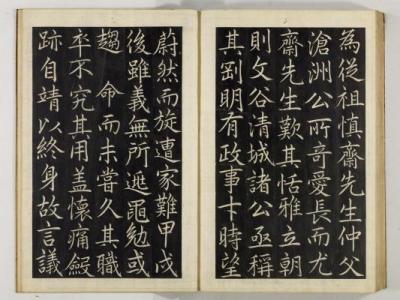 為從祖慎齋先生仲父
滄洲公所奇愛長而尤
齋先生歎其恬雅立朝
則文谷清城諸公亟稱
其剛明有政事卞時望
蔚然而旋遭家難甲戌
後雖義無所逃黽勉或
趨命而未嘗久其職
卒不究其用盖懷痛斂
跡自靖以終身故言議